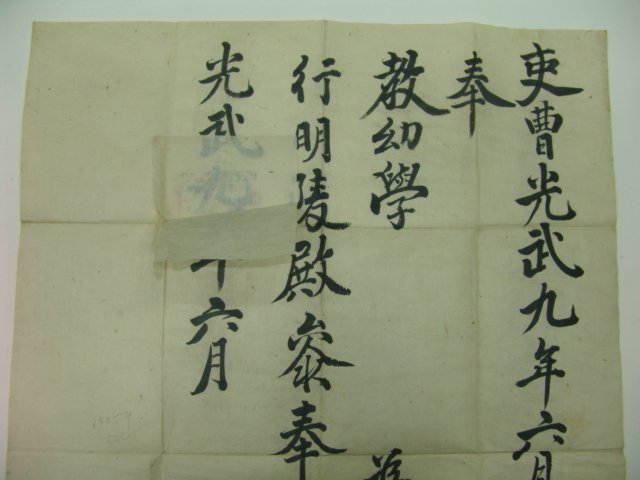 吏曹光武九年六月
奉
教幼學
行明陵殿參奉
光武九年六月